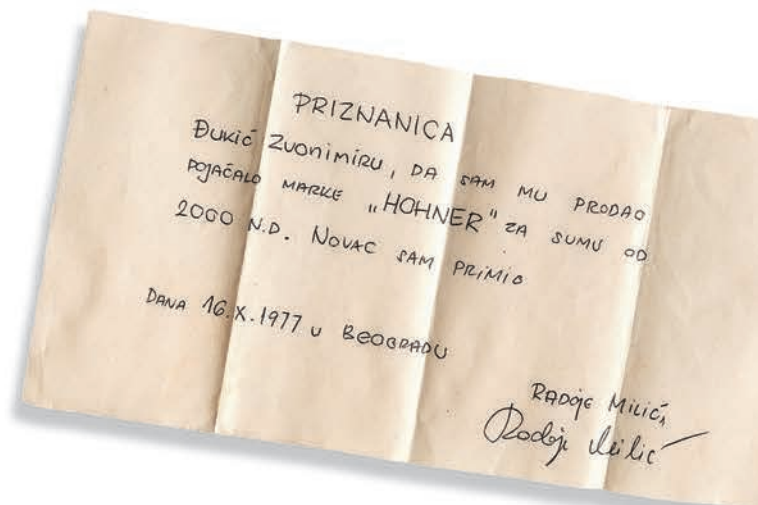 PRIZNANICA
ĐUKIĆ ZVONIMIRU, DA SAM MU PRODAO
POJAČALO MARKE „HOHNER" ZA SUMU OD
2000 N.D. NOVAC SAM PRIMIO
DANA 16.X.1977 U BEOGRADU
RADOJE MILIĆ,
Radoje Milić